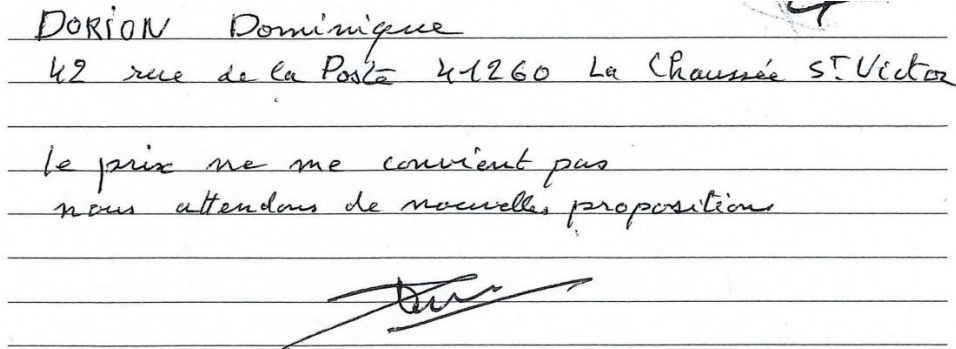 DORION Dominique
42 rue de la Poste 41260 La Chaussée St Victor
le prix ne me convient pas
nous attendons de nouvelles propositions